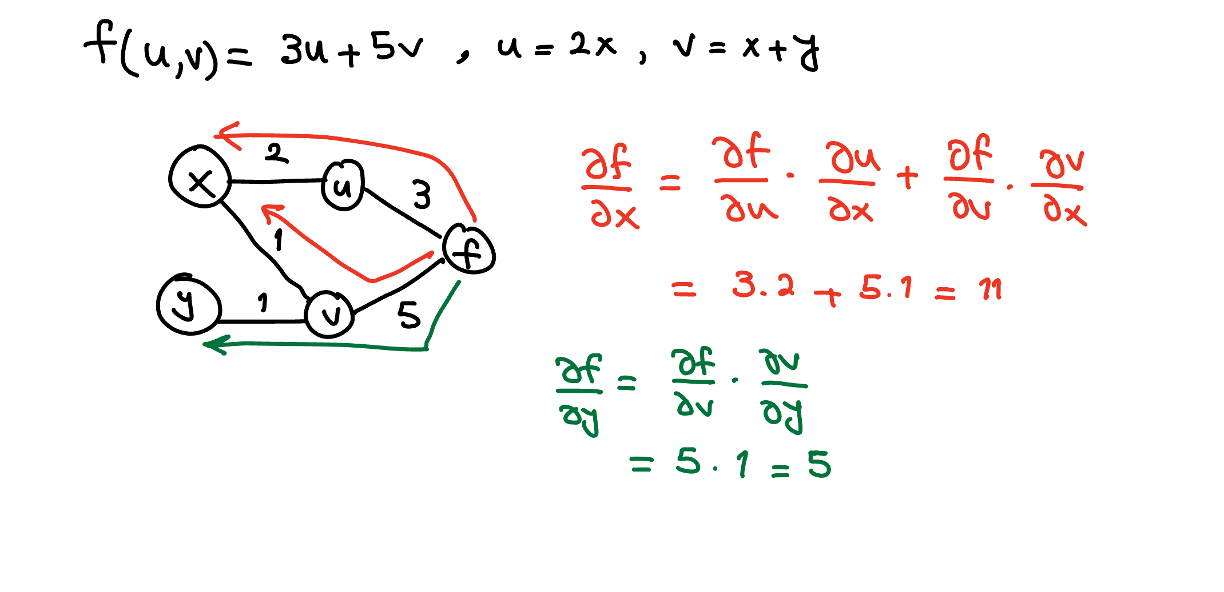 f(u,v) = 3u + 5v , u = 2x , v = x + y
x 2 u 3 f
1
y 1 v 5
∂f/∂x = ∂f/∂u · ∂u/∂x + ∂f/∂v · ∂v/∂x
= 3.2 + 5.1 = 11
∂f/∂y = ∂f/∂v · ∂v/∂y
= 5 . 1 = 5